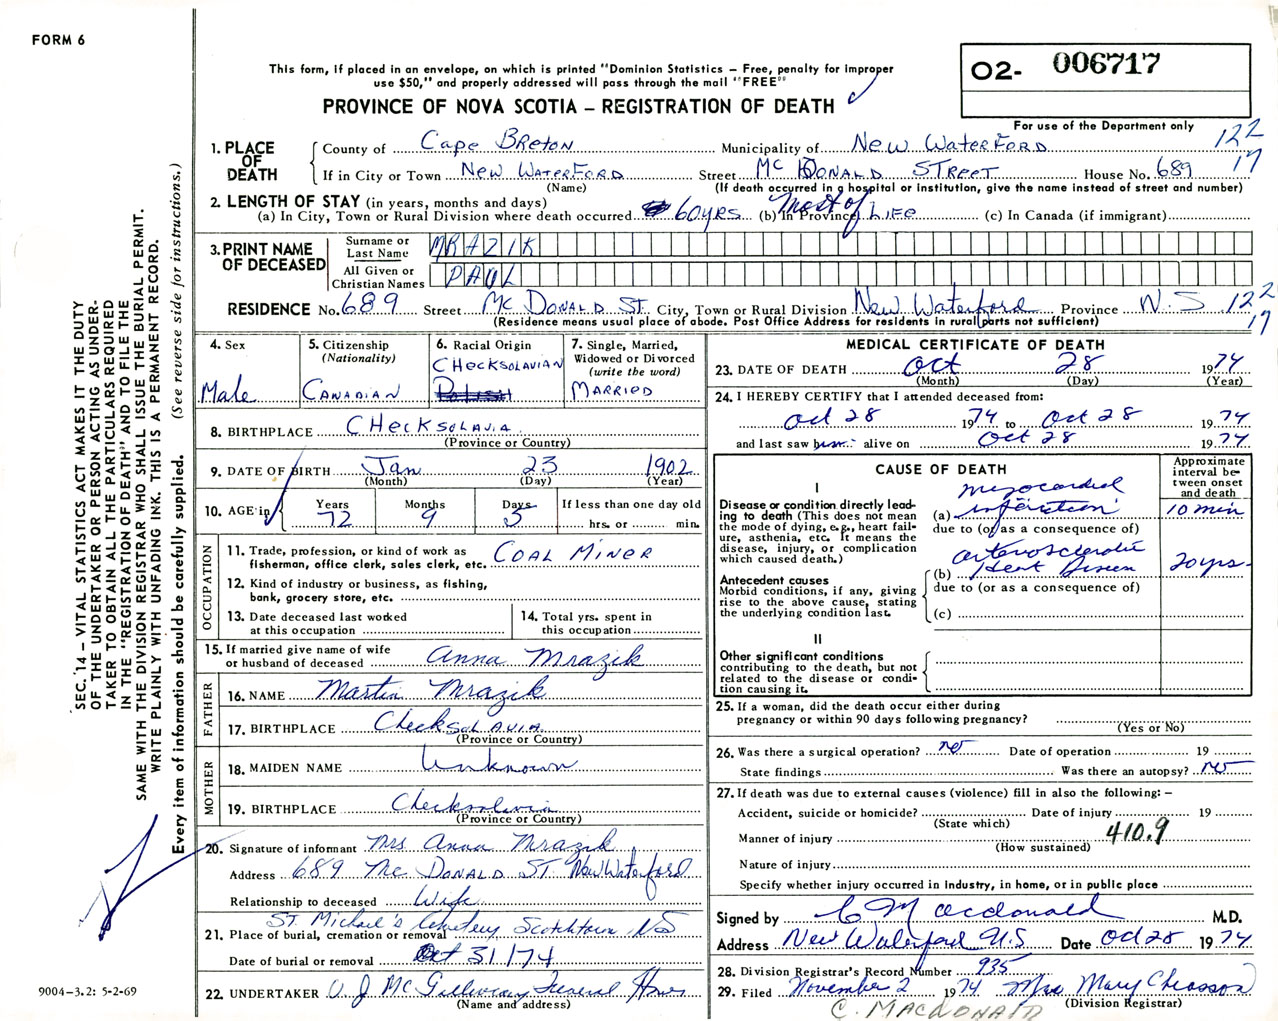 FORM 6
This form, if placed in an envelope, on which is printed "Dominion Statistics – Free, penalty for improper
use $50," and properly addressed will pass through the mail "FREE"
PROVINCE OF NOVA SCOTIA – REGISTRATION OF DEATH
02- 006717
For use of the Department only
122
17
1. PLACE OF DEATH
County of Cape Breton Municipality of New Waterford
If in City or Town New Waterford Street Mc Donald Street House No. 689
(Name) (If death occurred in a hospital or institution, give the name instead of street and number)
2. LENGTH OF STAY (in years, months and days)
(a) In City, Town or Rural Division where death occurred 60 yrs (b) In Province Most of Life (c) In Canada (if immigrant)
3. PRINT NAME OF DECEASED
Surname or Last Name MRAZIK
All Given or Christian Names PAUL
RESIDENCE No. 689 Street Mc Donald St. City, Town or Rural Division New Waterford Province N.S 122
17
(Residence means usual place of abode. Post Office Address for residents in rural parts not sufficient)
4. Sex
Male
5. Citizenship
(Nationality)
Canadian
6. Racial Origin
Checksolavian
7. Single, Married,
Widowed or Divorced
(write the word)
Married
8. BIRTHPLACE Checksolavia
(Province or Country)
9. DATE OF BIRTH Jan 23 1902
(Month) (Day) (Year)
10. AGE in Years 72 Months 9 Days 5 If less than one day old
hrs. or min.
OCCUPATION
11. Trade, profession, or kind of work as
fisherman, office clerk, sales clerk, etc. Coal Miner
12. Kind of industry or business, as fishing,
bank, grocery store, etc.
13. Date deceased last worked
at this occupation
14. Total yrs. spent in
this occupation
15. If married give name of wife
or husband of deceased Anna Mrazik
FATHER
16. NAME Martin Mrazik
17. BIRTHPLACE Checksolavia
(Province or Country)
MOTHER
18. MAIDEN NAME Unknown
19. BIRTHPLACE Checksolavia
(Province or Country)
20. Signature of informant Mrs Anna Mrazik
Address 689 Mc Donald St New Waterford
Relationship to deceased Wife
St. Michael's Cemetery Scotchtown NS
21. Place of burial, cremation or removal
Date of burial or removal Oct 31/74
22. UNDERTAKER V. J McGillivray Funeral Home
(Name and address)
MEDICAL CERTIFICATE OF DEATH
23. DATE OF DEATH Oct 28 1974
(Month) (Day) (Year)
24. I HEREBY CERTIFY that I attended deceased from:
Oct 28 1974 to Oct 28 1974
and last saw him alive on Oct 28 1974
CAUSE OF DEATH
Approximate
interval be-
tween onset
and death
I
Disease or condition directly lead-
ing to death (This does not mean
the mode of dying, e.g., heart fail-
ure, asthenia, etc. It means the
disease, injury, or complication
which caused death.)
myocardial
(a) infarction 10 min
due to (or as a consequence of)
arteriosclerotic
(b) Heart Disease 20 yrs
due to (or as a consequence of)
(c)
Antecedent causes
Morbid conditions, if any, giving
rise to the above cause, stating
the underlying condition last.
II
Other significant conditions
contributing to the death, but not
related to the disease or condi-
tion causing it.
25. If a woman, did the death occur either during
pregnancy or within 90 days following pregnancy?
(Yes or No)
26. Was there a surgical operation? no Date of operation 19
State findings Was there an autopsy? no
27. If death was due to external causes (violence) fill in also the following: –
Accident, suicide or homicide? Date of injury 19
(State which)
Manner of injury 410.9
(How sustained)
Nature of injury
Specify whether injury occurred in industry, in home, or in public place
Signed by C Macdonald M.D.
Address New Waterford N.S Date Oct 28 1974
28. Division Registrar's Record Number 935
29. Filed November 2 1974 Mrs Mary Chiasson
(Division Registrar)
C. MACDONALD
SEC. 14 – VITAL STATISTICS ACT MAKES IT THE DUTY
OF THE UNDERTAKER OR PERSON ACTING AS UNDER-
TAKER TO OBTAIN ALL THE PARTICULARS REQUIRED
IN THE "REGISTRATION OF DEATH" AND TO FILE THE
SAME WITH THE DIVISION REGISTRAR WHO SHALL ISSUE THE BURIAL PERMIT.
WRITE PLAINLY WITH UNFADING INK. THIS IS A PERMANENT RECORD.
Every item of information should be carefully supplied. (See reverse side for instructions.)
9004-3.2: 5-2-69